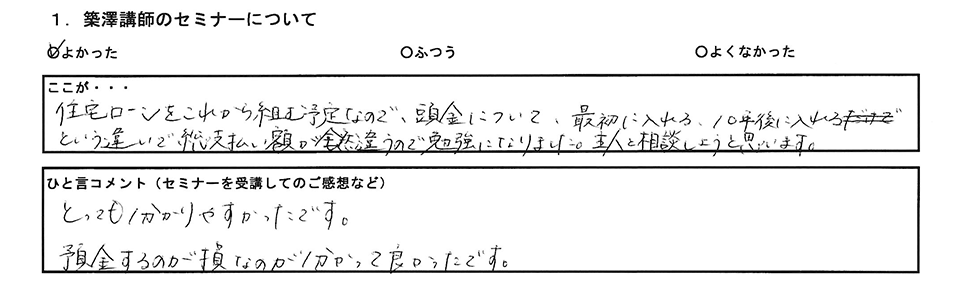 1．築澤講師のセミナーについて
よかった ○ふつう ○よくなかった
ここが・・・
住宅ローンをこれから組む予定なので、頭金について、最初に入れる、10年後に入れる
という違いで総支払い額が全然違うので勉強になりました。主人と相談しようと思います。
ひと言コメント（セミナーを受講してのご感想など）
とっても分かりやすかったです。
預金するのが損なのが分かって良かったです。